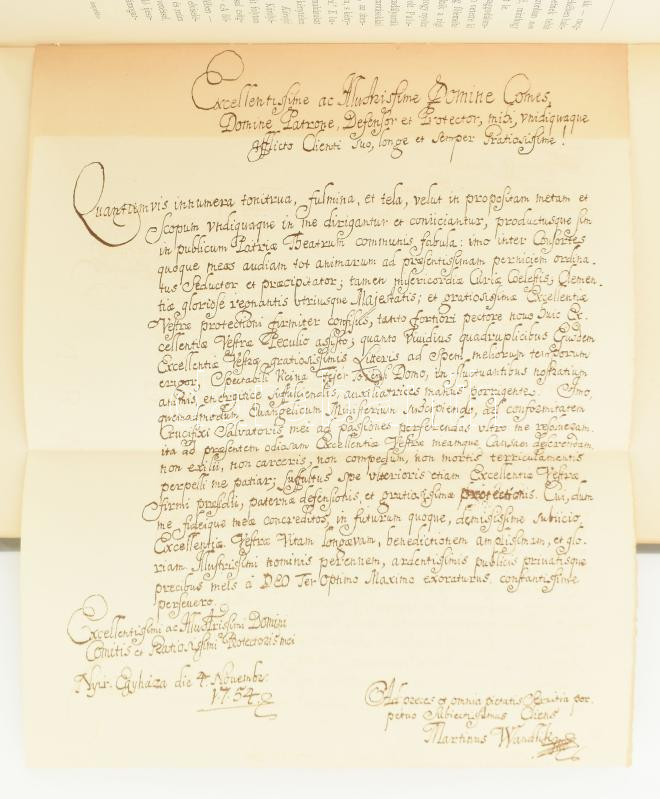 Excellentissime ac Illustrissime Domine Comes,
Domine Patrone, Defensor et Protector, mihi, undiquaque
afflicto Clienti suo, longe et semper Gratiosissime!
Quantumvis innumera tonitrua, fulmina, et tela, velut in propositam metam et
Scopum undiquaque in me dirigantur et coniiciantur, productusque sim
in publicum Patriæ Theatrum communis fabula: imo inter Consortes
quoque meas audiam tot animarum ad præsentissimam perniciem ordina-
tus Seductor et præcipitator; tamen misericordiâ Curiæ Coelestis, Clemen-
tiæ gloriose regnantis utriusque Majestatis; et gratiosissimæ Excellentiæ
Vestræ protectioni firmiter confisus, tanto fortiori pectore novo huic Ex-
cellentiæ Vestræ Peculio assisto; quanto vividius quadruplicibus Ejusdem
Excellentiæ Vestræ gratiosissimis Litteris ad Spem meliorum temporum
erigor; Spectabili Vicina Domo, in fluctuantibus nostratium
animis, energice suffulciendis, auxiliatrices manus porrigente. Imo,
quemadmodum, Evangelicum Ministerium suscipiendo, ad conformitatem
Crucifixi Salvatoris mei ad passiones perferendas ultro me
ita ad præsentem odiosam Excellentiæ Vestræ meamque Causam deserendam,
non exilii, non carceris, non compedum, non mortis terriculamentis
perpelli me patiar; suffultus spe ulterioris etiam Excellentiæ Vestræ
firmi præsidii, paternæ defensionis, et gratiosissimæ protectionis. Cui, dum
me fideique meæ concreditos, in futurum quoque, demisissime subiicio,
Excellentiæ Vestræ Vitam longævam, benedictionem amplissimam, et glo-
riam Illustrissimi nominis perennem, ardentissimis publicis privatisque
precibus meis â DEO Ter Optimo Maximo exoraturus, constantissime
persevero.
Excellentissimi ac Illustrissimi Domini
Comitis et Gratiosissimi Protectoris mei
Nyir-Egyháza die 4. Novembr:
1754.
Ad preces et omnia pietatis Servitia per-
petuo Subiectissimus Cliens
Martinus Wandlik